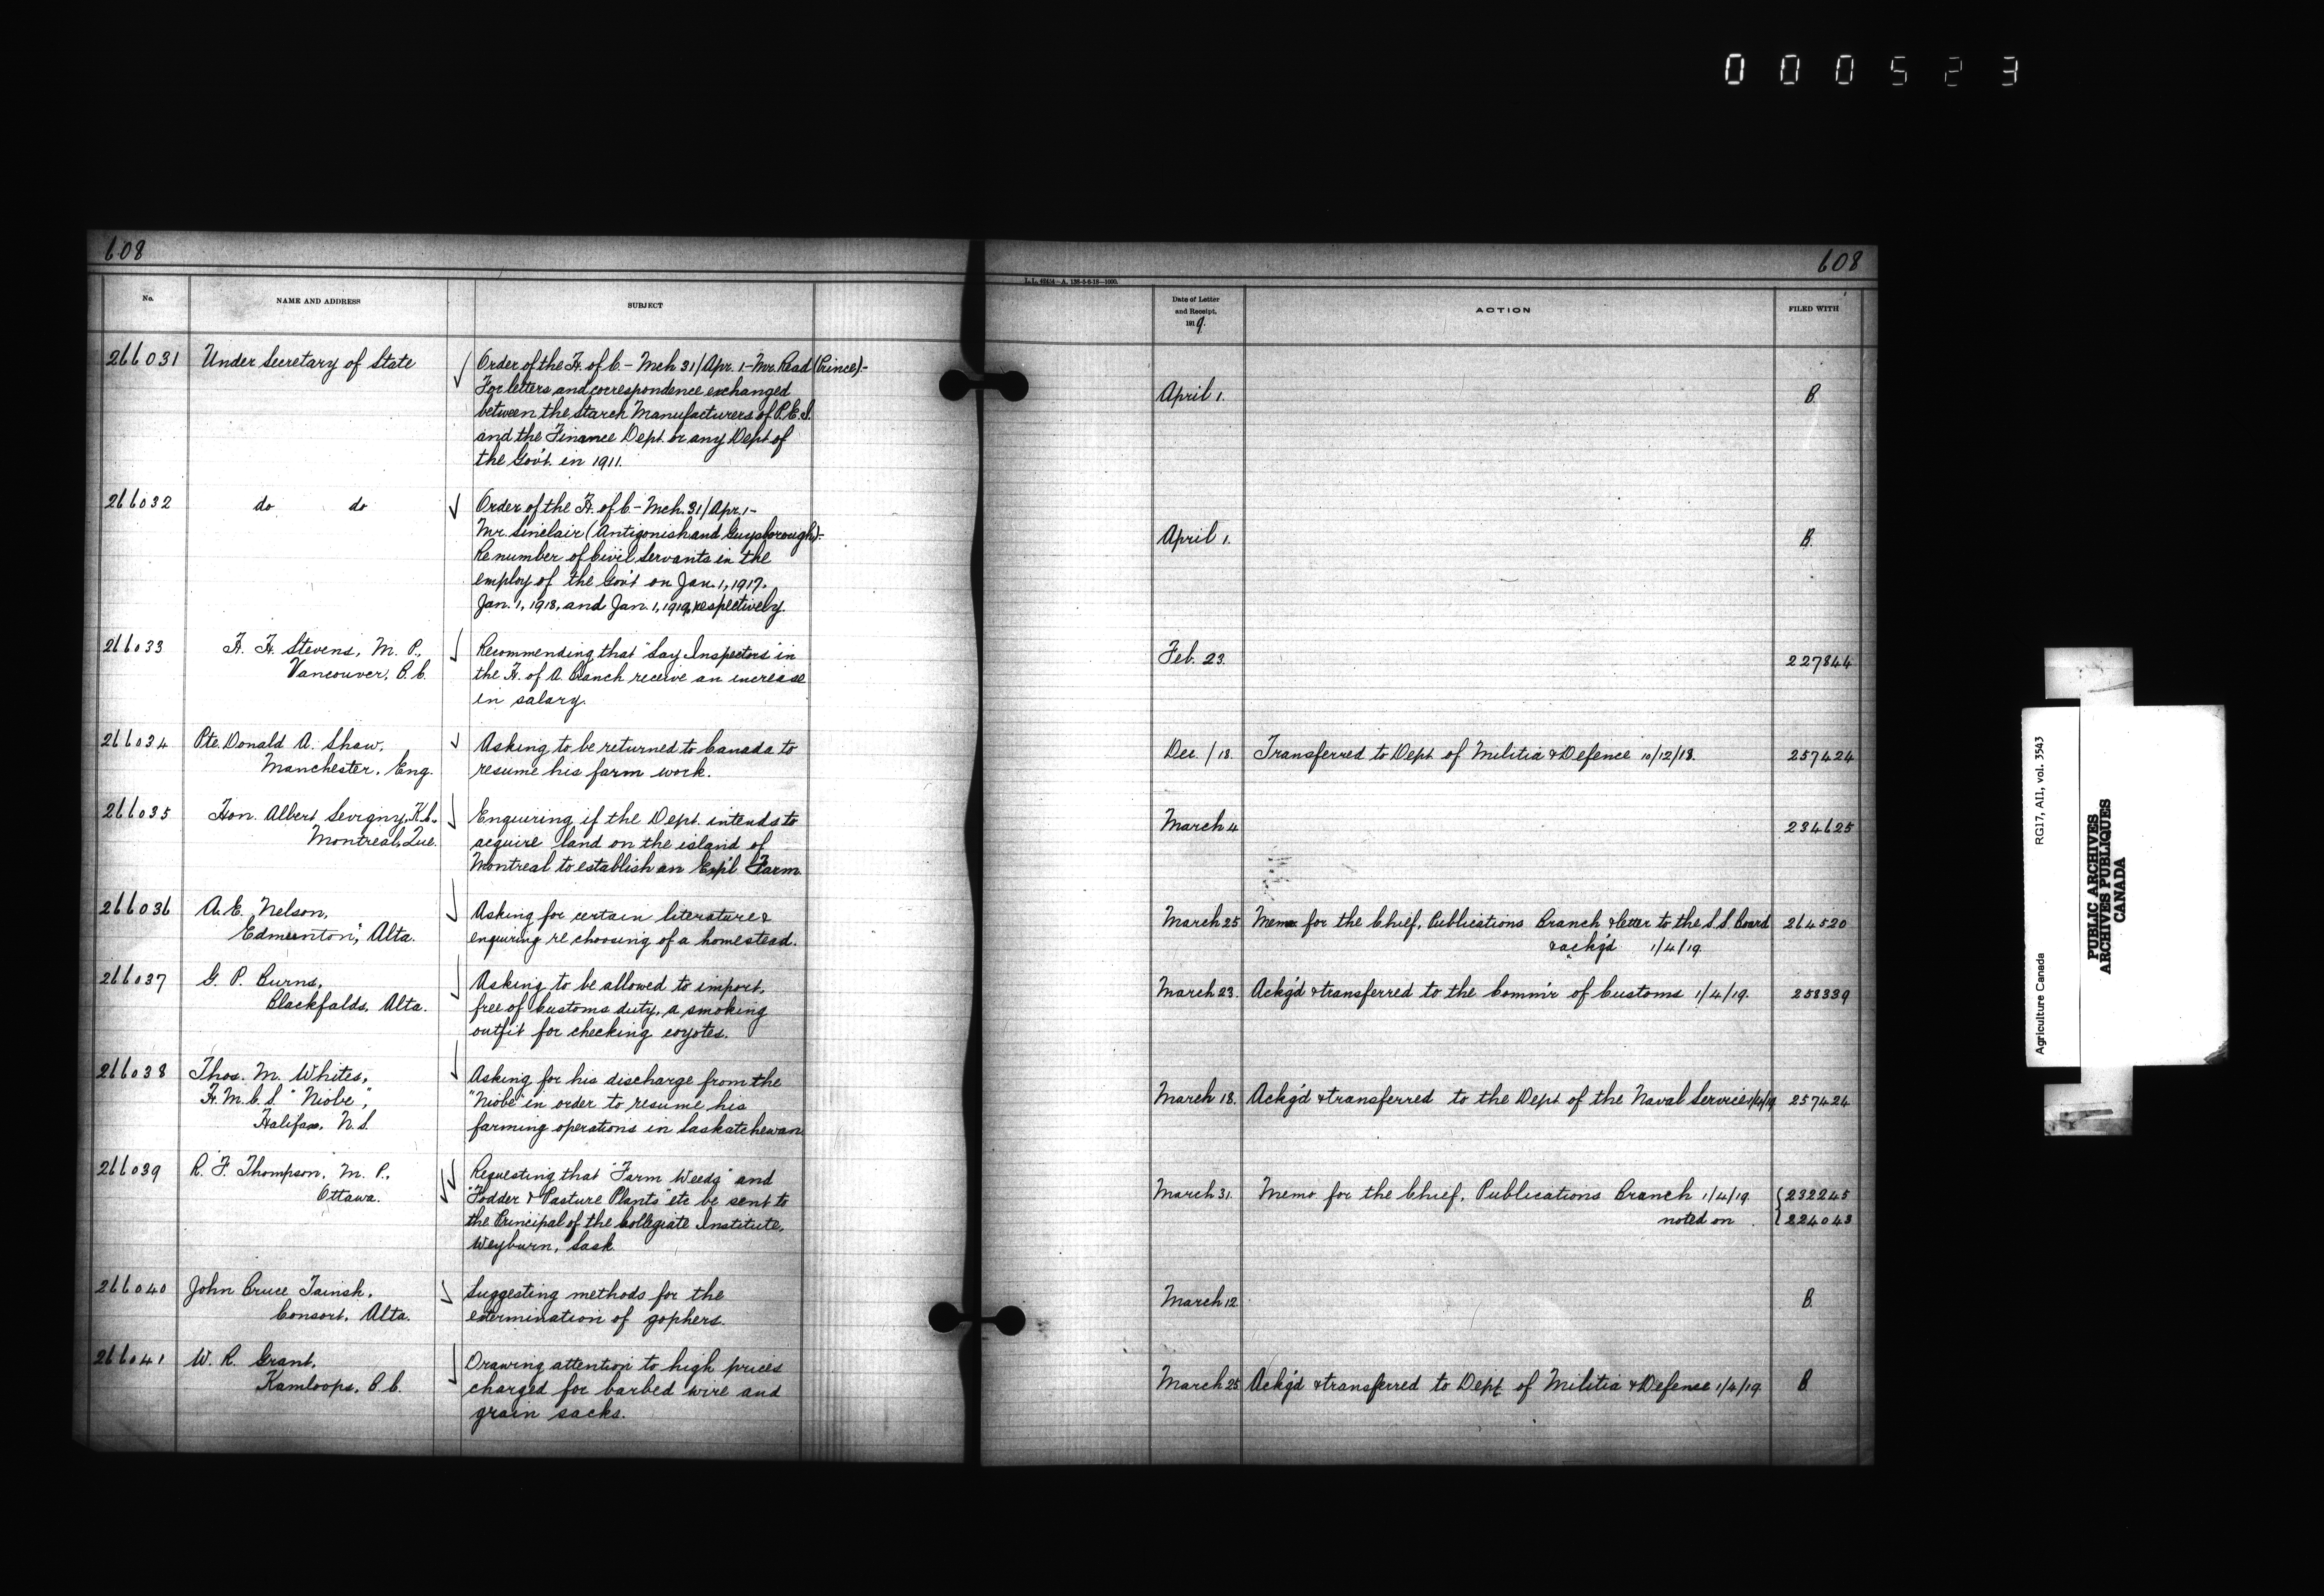 000523
608
608
L. L. 42414—A. 138-5-8-18—1000.
No.
NAME AND ADDRESS
SUBJECT
Date of Letter
and Receipt,
1919.
ACTION
FILED WITH
266031 Under Secretary of State
Order of the H. of C - Mch 31/Apr. 1 - Mr. Read (Prince) -
For letters and correspondence exchanged
between the Starch Manufacturers of P.E.I.
and the Finance Dept. or any Dept of
the Gov't. in 1911.
April 1.
B.
266032 do do
Order of the H. of C - Mch. 31/Apr. 1 -
Mr. Sinclair (Antigonish and Guysborough) -
Re number of Civil Servants in the
employ of the Gov't on Jan. 1, 1917.
Jan. 1, 1918, and Jan. 1, 1919, respectively.
April 1.
B.
266033 H. H. Stevens, M. P.,
Vancouver, B.C.
Recommending that "Lay Inspectors" in
the H. of A. Branch receive an increase
in salary.
Feb. 23.
227844
266034 Pte. Donald A. Shaw,
Manchester, Eng.
Asking to be returned to Canada to
resume his farm work.
Dec. /18.
Transferred to Dept. of Militia & Defence 10/12/18.
257424
266035 Hon. Albert Sevigny, K.C.,
Montreal, Que.
Enquiring if the Dept. intends to
acquire land on the island of
Montreal to establish an Exp'l Farm.
March 4
234625
266036 A. E. Nelson,
Edmunton", Alta.
Asking for certain literature &
enquiring re choosing of a homestead.
March 25
Memo. for the Chief, Publications Branch & letter to the S.S. Board
& ack'g'd 1/4/19
264520
266037 G. P. Burns,
Blackfalds, Alta.
Asking to be allowed to import,
free of customs duty, a smoking
outfit for checking coyotes.
March 23.
Ackg'd & transferred to the Comm'r of Customs 1/4/19.
258339
266038 Thos. M. Whites,
H.M.C.S. "Niobe",
Halifax, N.S.
Asking for his discharge from the
"Niobe" in order to resume his
farming operations in Saskatchewan.
March 18.
Ackg'd & transferred to the Dept of the Naval Service 1/4/19
257424
266039 R. F. Thompson, M. P.,
Ottawa.
Requesting that "Farm Weeds" and
"Fodder & Pasture Plants" etc be sent to
the Principal of the Collegiate Institute,
Weyburn, Sask.
March 31.
Memo for the Chief, Publications Branch 1/4/19.
noted on
232245
224043
266040 John Bruce Tainsh,
Consort, Alta.
Suggesting methods for the
extermination of gophers.
March 12.
B.
266041 W. R. Grant,
Kamloops, B.C.
Drawing attention to high prices
charged for barbed wire and
grain sacks.
March 25.
Ackg'd & transferred to Dept. of Militia & Defence 1/4/19.
B.
Agriculture Canada RG17, AI1, vol. 3543
PUBLIC ARCHIVES
ARCHIVES PUBLIQUES
CANADA